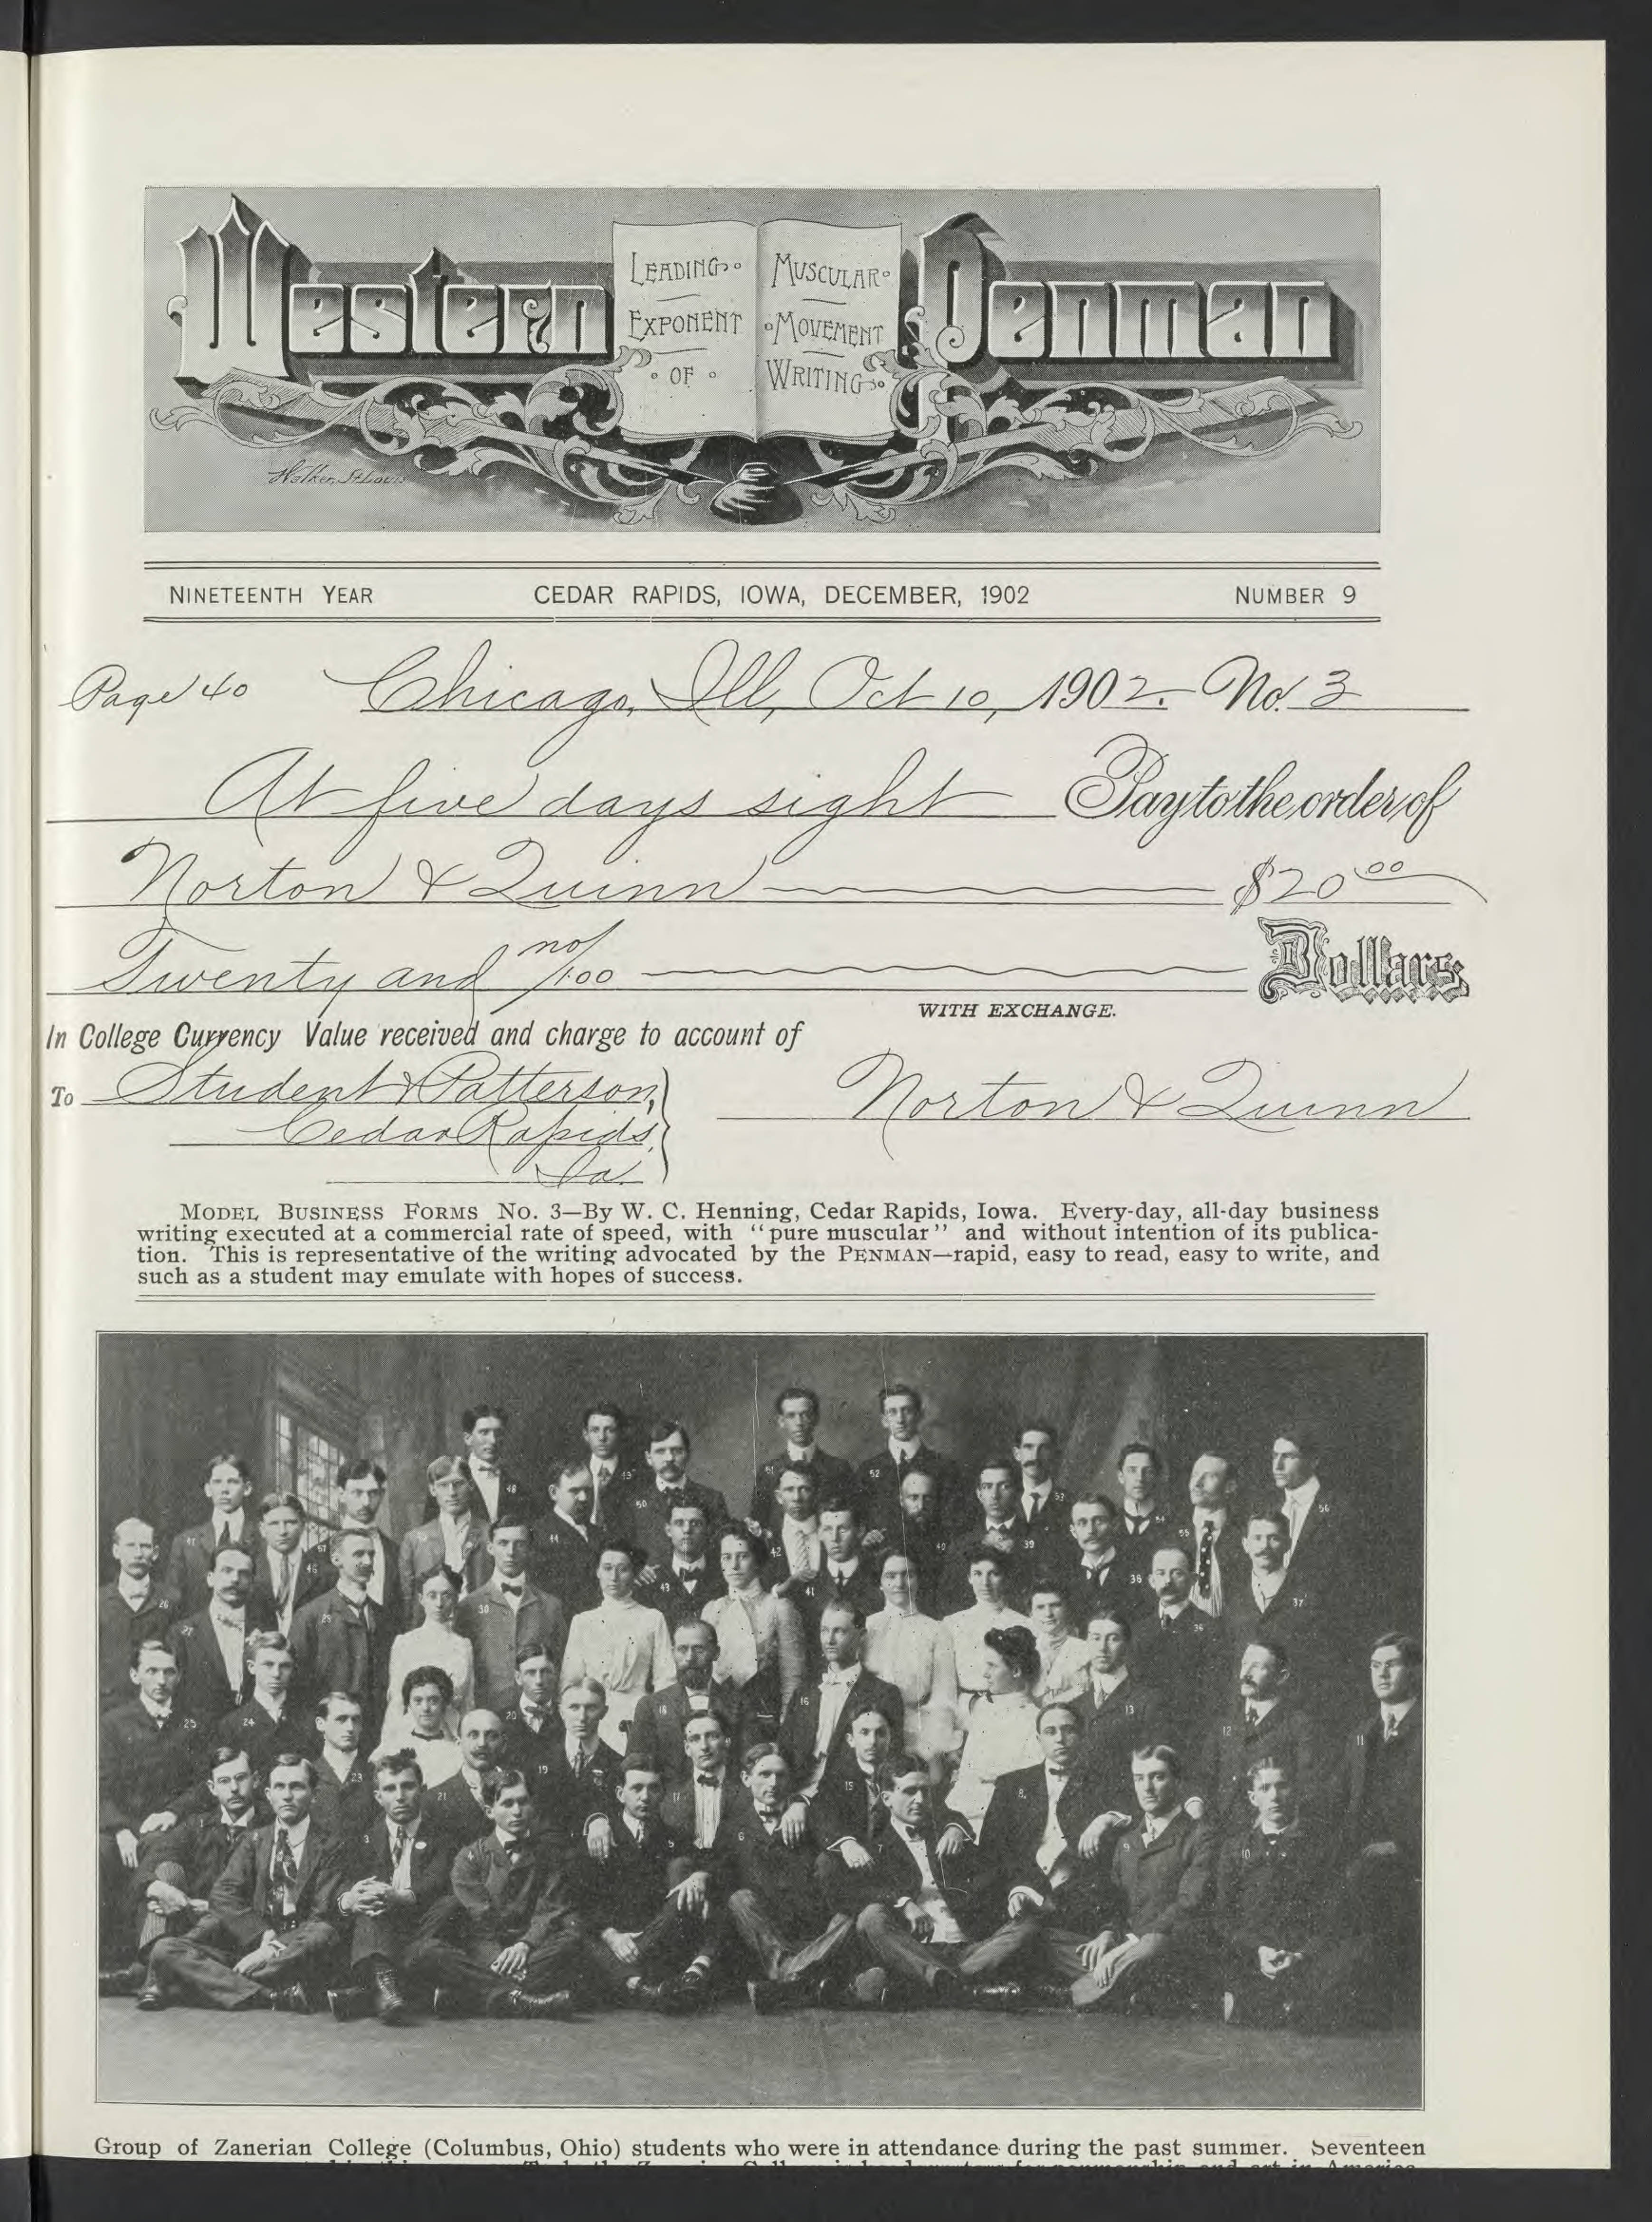 Western Penman
LEADING
EXPONENT
OF
MUSCULAR
MOVEMENT
WRITING
Walker, St. Louis
NINETEENTH YEAR CEDAR RAPIDS, IOWA, DECEMBER, 1902 NUMBER 9
Page 40 Chicago, Ill, Oct 10, 1902. No. 3
At five days sight Pay to the order of
Norton & Quinn $20.00
Twenty and no/100 Dollars
WITH EXCHANGE.
In College Currency Value received and charge to account of
To Student & Patterson, Norton & Quinn
Cedar Rapids,
Ia.
MODEL BUSINESS FORMS NO. 3—By W. C. Henning, Cedar Rapids, Iowa. Every-day, all-day business
writing executed at a commercial rate of speed, with "pure muscular" and without intention of its publica-
tion. This is representative of the writing advocated by the PENMAN—rapid, easy to read, easy to write, and
such as a student may emulate with hopes of success.
51 52
48 49 50 53
54 56
47 57 46 44 42 40 39 55
26 43 41 38 37
27 29 30 36
25 24 20 18 16 13 12 11
23 21 19 17 15 8
1 3 4 5 6 7 9 10
Group of Zanerian College (Columbus, Ohio) students who were in attendance during the past summer. Seventeen